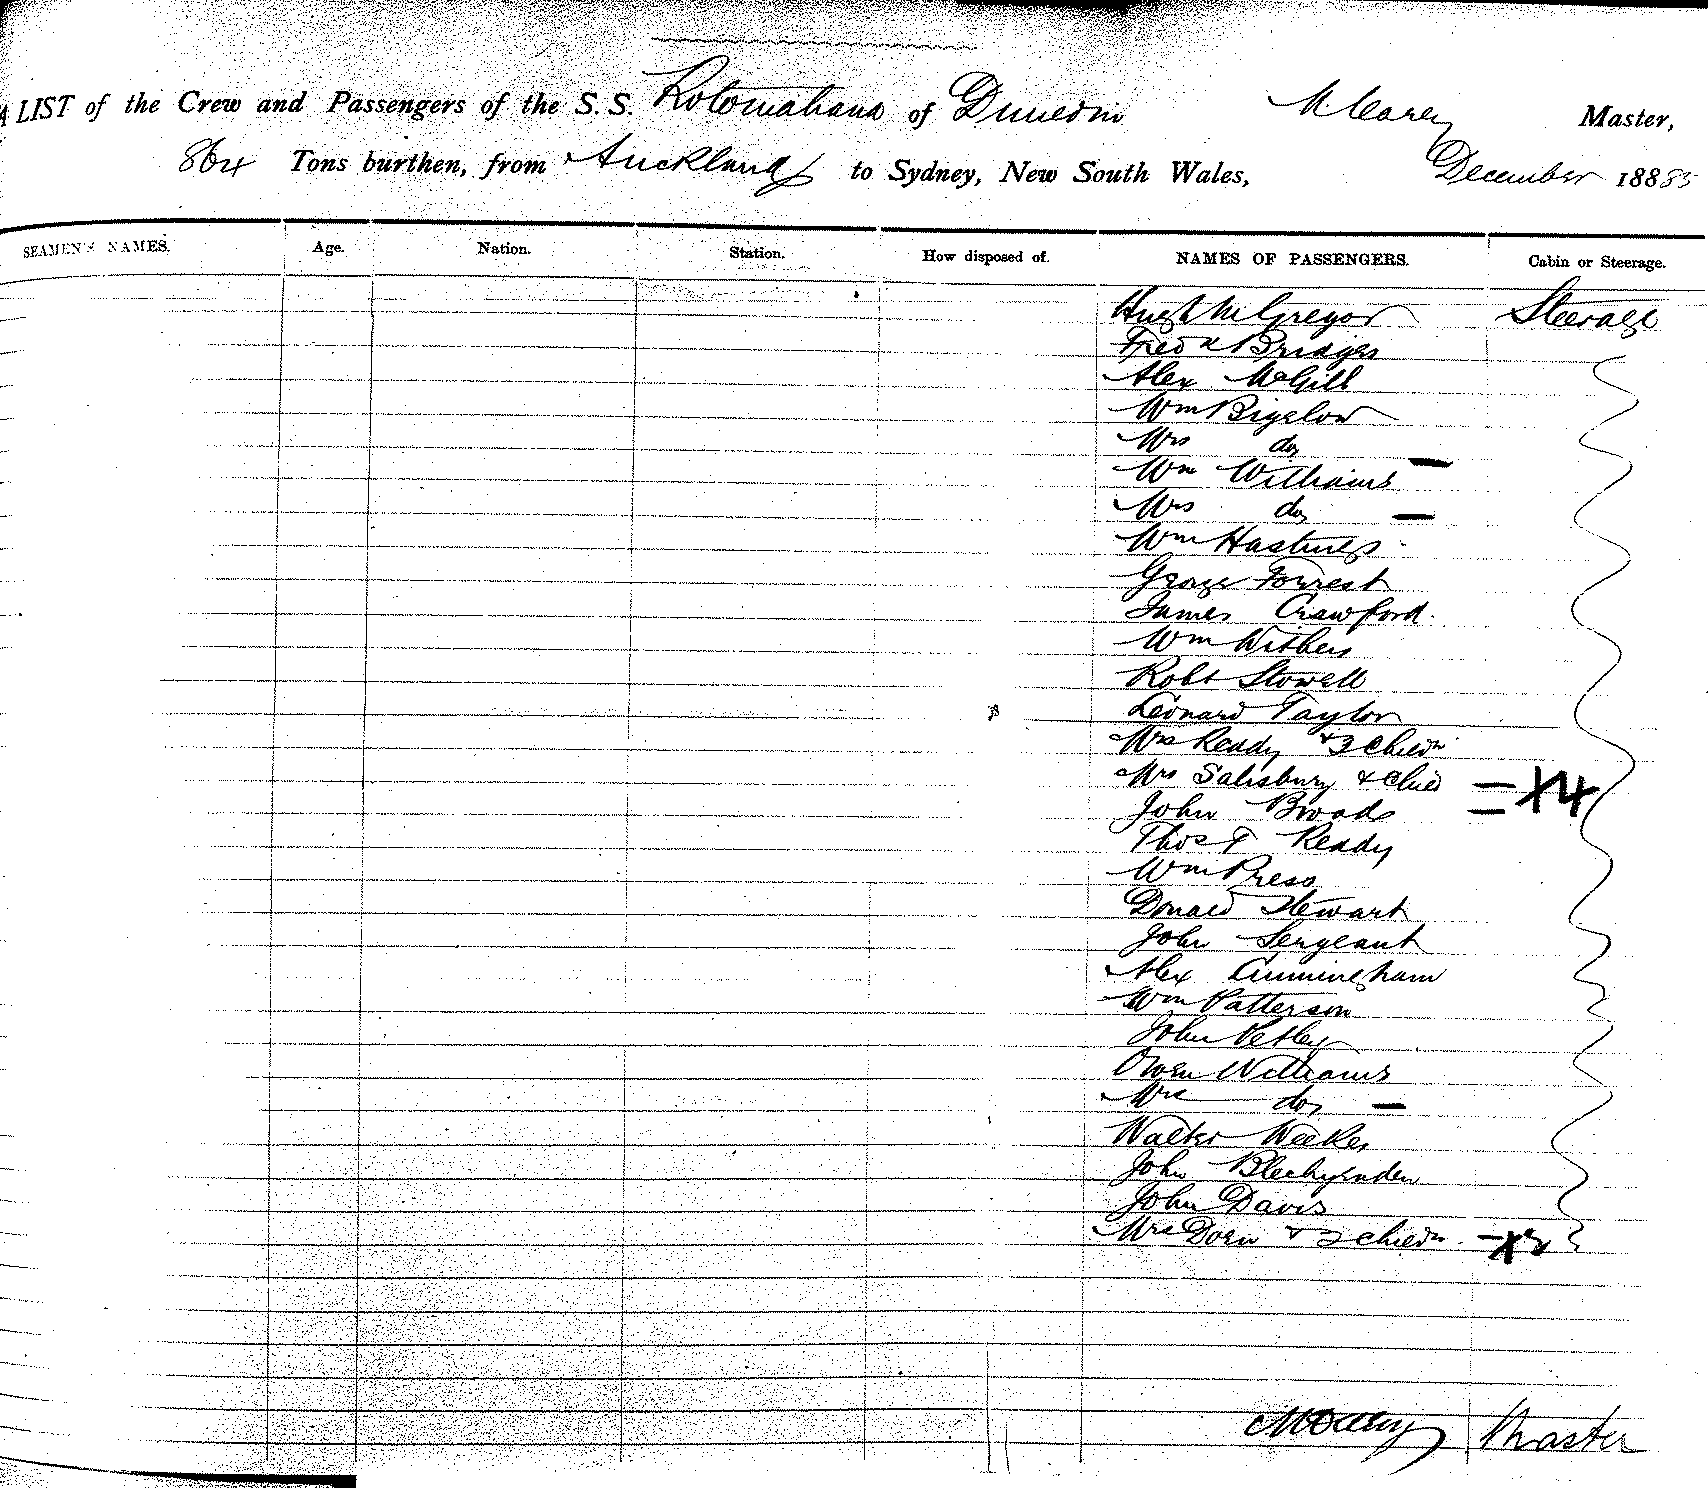 A LIST of the Crew and Passengers of the S.S. Rotomahana of Dunedin M Carey Master,
864 Tons burthen, from Auckland to Sydney, New South Wales, December 1885
SEAMEN'S NAMES. Age. Nation. Station. How disposed of. NAMES OF PASSENGERS. Cabin or Steerage.
Hugh McGregor Steerage
Fredk Bridges
Alex McGill
Wm Bigelow
Mrs do
Wm Williams
Mrs do
Wm Hastings
George Forrest
James Crawford
Wm Withers
Robt Stowell
Leonard Taylor
Mrs Reddy & 3 Childn
Mrs Salisbury & Child = X4
John Broads
Thos F Reddy
Wm Press
Donald Stewart
John Sergeant
Alex Cunningham
Wm Patterson
John Petley
Owen Williams
Mrs do
Walter Weekes
John Blechynden
John Davis
Mrs Dorn & 2 Childn - X2
M Carey Master